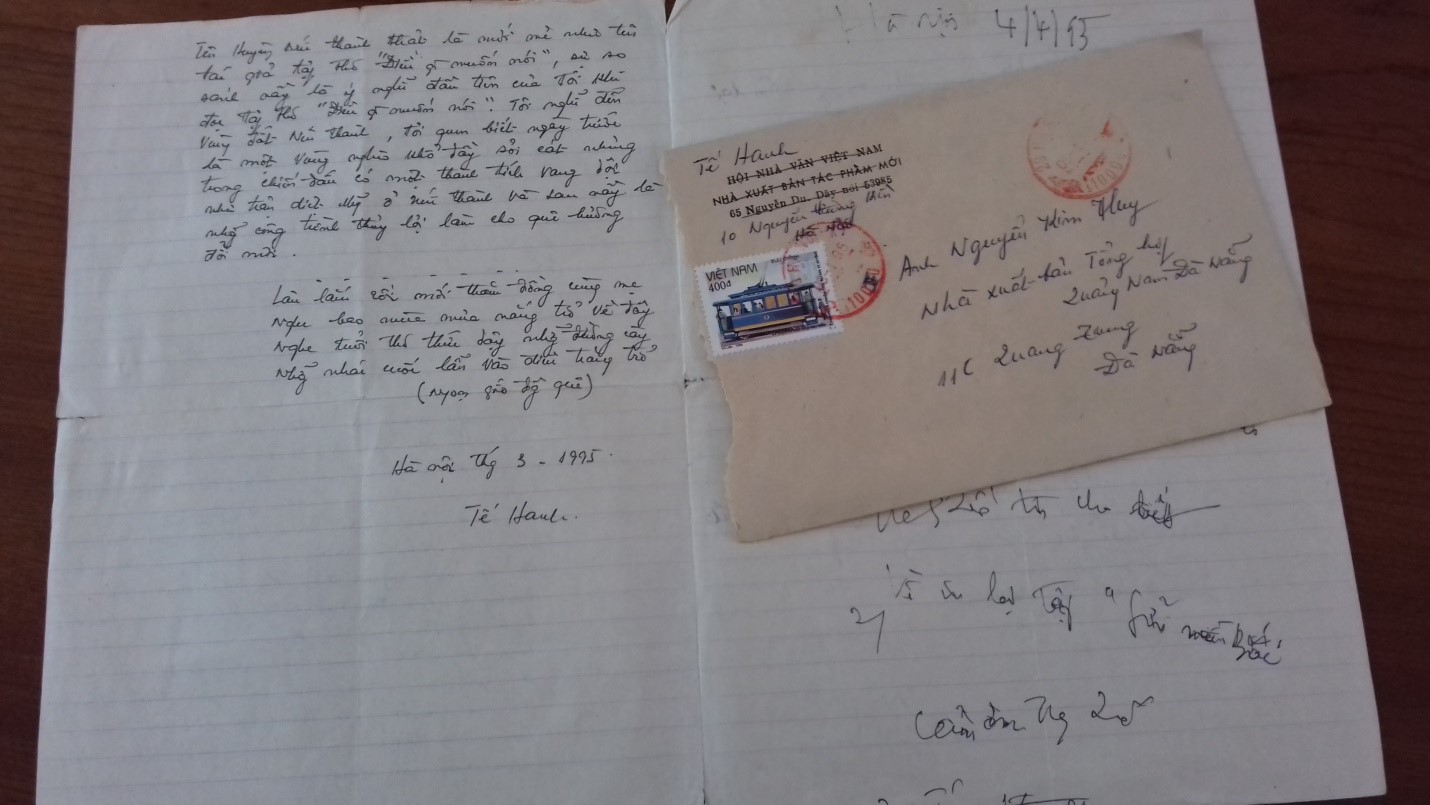 Tên Huyện Núi Thành thật là mới mẻ như tên
tác giả tập thơ "Điều gì muốn nói", sự so
sánh nầy là ý nghĩ đầu tiên của tôi khi
đọc tập thơ "Điều gì muốn nói". Tôi nghĩ đến
vùng đất Núi Thành, tôi quen biết ngày trước
là một vùng nghèo khổ đầy sỏi cát nhưng
trong chiến đấu có một thành tích vang dội
như trận diệt Mỹ ở Núi Thành và sau nầy là
những công trình thủy lợi làm cho quê hương
đổi mới.
Lâu lắm rồi mới thăm đồng cùng mẹ
Nghe bao mùa mưa nắng trở về đây
Nghe tuổi thơ thức dậy những đường cày
Những nhát cuối lẫn vào diều trắng trở
(Ngọn gió đồng quê)
Hà nội thg 3 - 1995.
Tế Hanh.
Hà Nội 4/4/95
Tế Hanh
HỘI NHÀ VĂN VIỆT NAM
NHÀ XUẤT BẢN TÁC PHẨM MỚI
65 Nguyễn Du. Dây nói 53985
10 Nguyễn Thượng Hiền
Hà Nội
VIỆT NAM
400đ
Anh Nguyễn Kim Huy
Nhà xuất bản Tổng hợp
Quảng Nam Đà Nẵng
11C Quang Trung
Đà Nẵng
tin cho biết
2/ Về in lại tập "Gửi miền Bắc
Cảm ơn